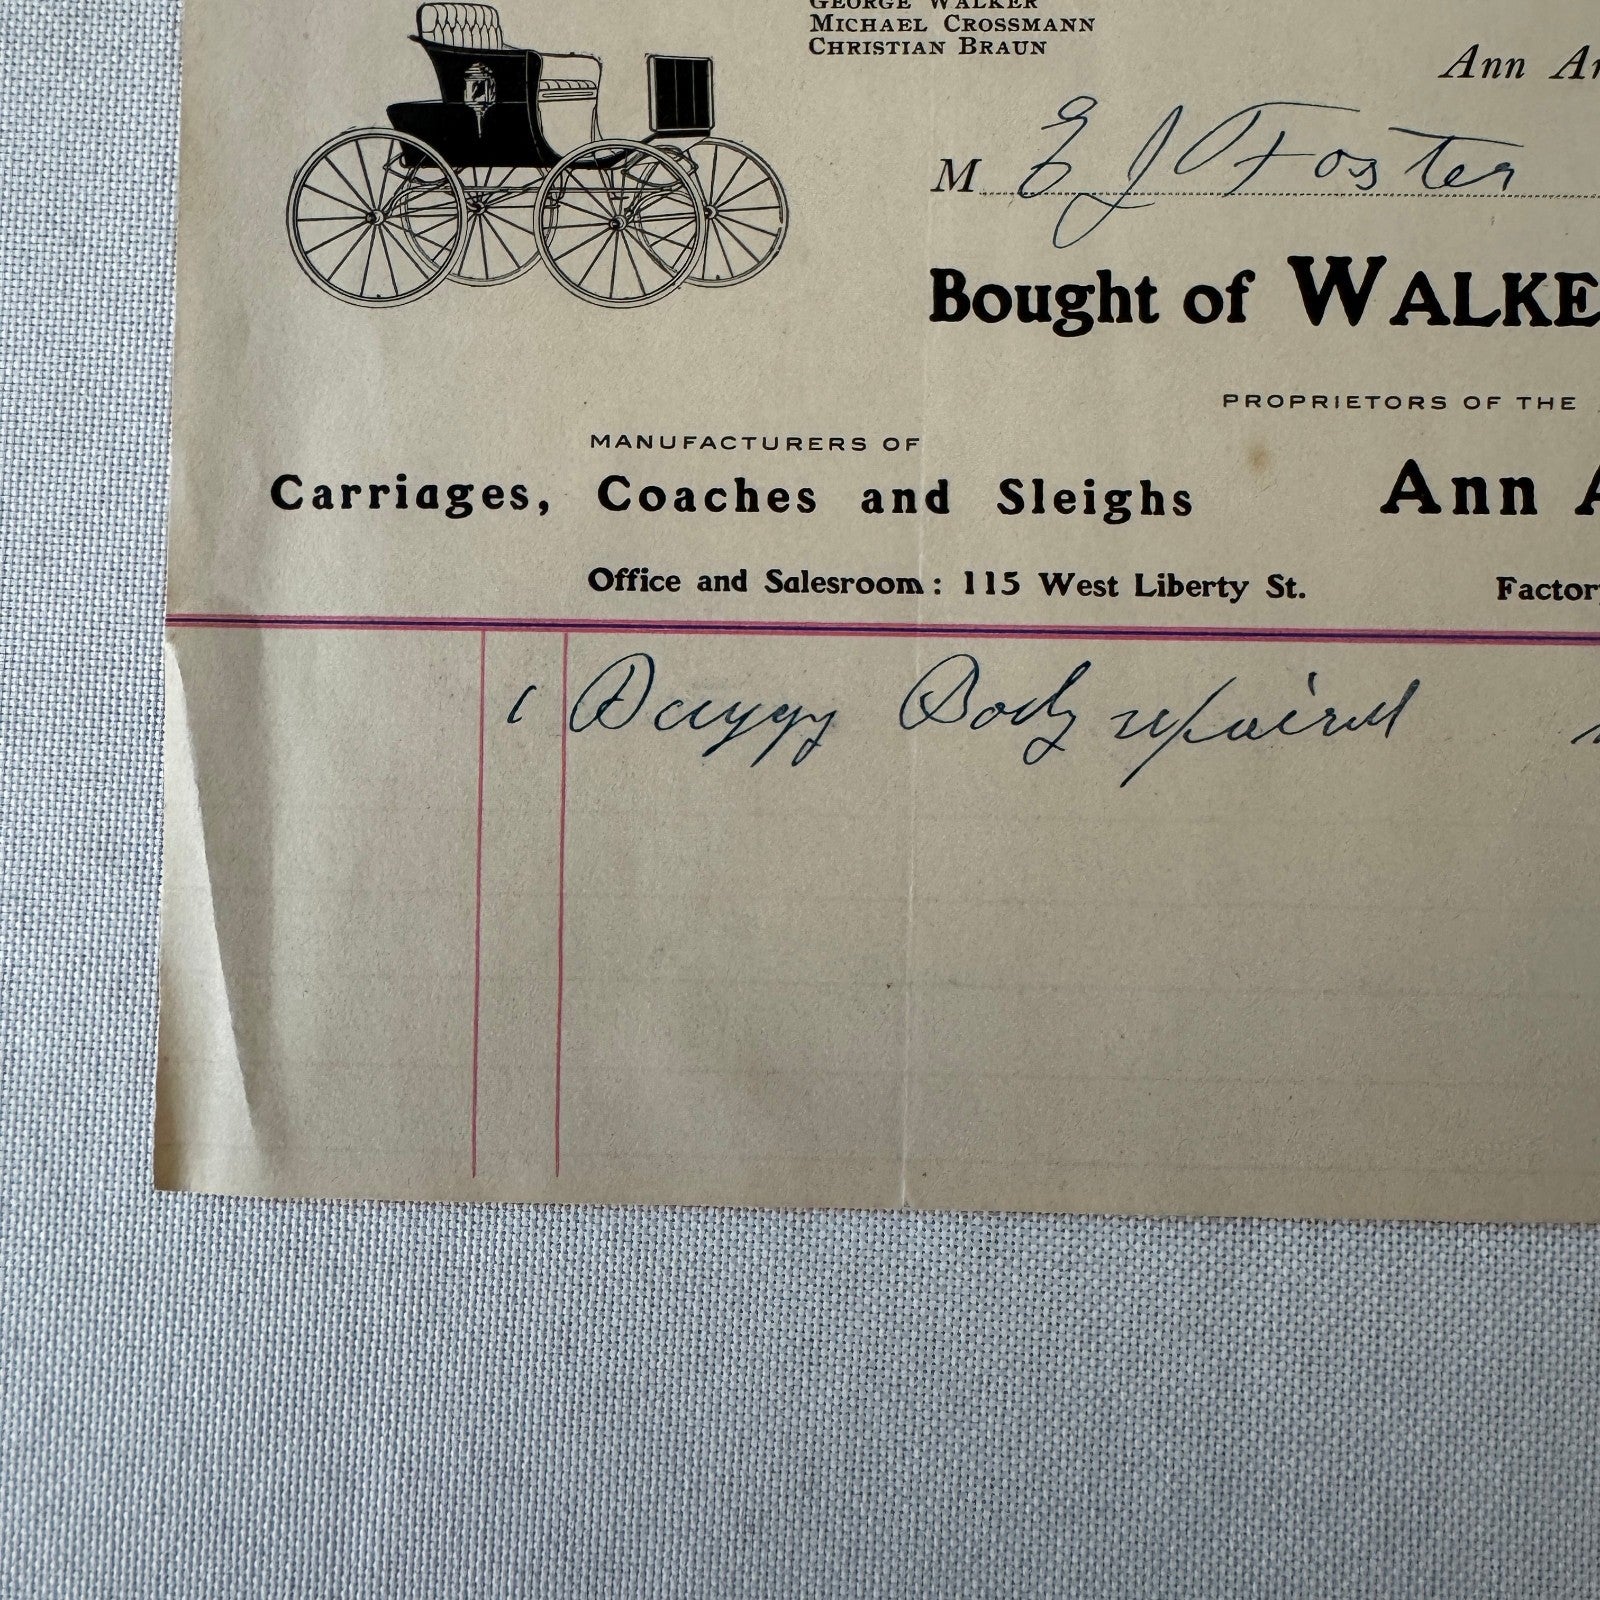 GEORGE WALKER
MICHAEL CROSSMANN
CHRISTIAN BRAUN
Ann Ar
M E J Foster
Bought of WALKE
PROPRIETORS OF THE
MANUFACTURERS OF
Carriages, Coaches and Sleighs
Ann A
Office and Salesroom: 115 West Liberty St.
Factory
1 Buggy Body repaired